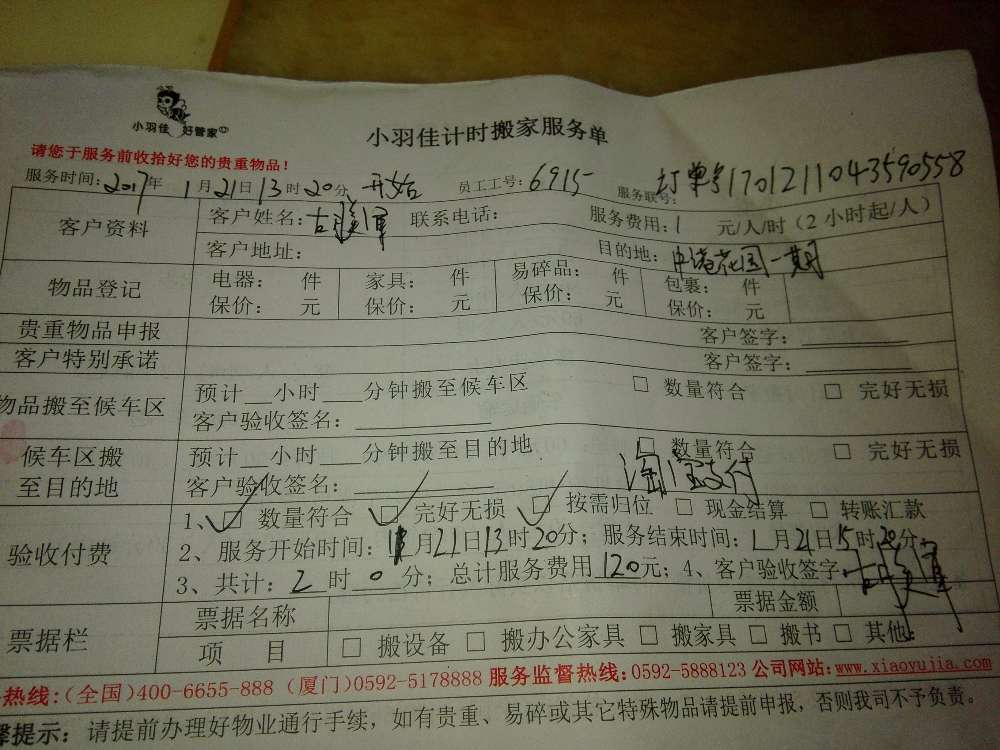 小羽佳 好管家
小羽佳计时搬家服务单
请您于服务前收拾好您的贵重物品！
服务时间：2017年1月21日13时20分 开始 员工工号：6915 服务联号： 订单号1701211043590558
客户资料 客户姓名： 联系电话： 服务费用：1 元/人/时（2小时起/人）
客户地址： 目的地：中港花园一期
物品登记 电器： 件 家具： 件 易碎品： 件 包裹： 件
保价： 元 保价： 元 保价： 元 保价： 元
贵重物品申报 客户签字：
客户特别承诺 客户签字：
物品搬至候车区 预计__小时___分钟搬至候车区 □ 数量符合 □ 完好无损
客户验收签名：
候车区搬至目的地 预计__小时___分钟搬至目的地 □ 数量符合 □ 完好无损
客户验收签名： 淘宝支付
验收付费 1、☑ 数量符合 ☑ 完好无损 ☑ 按需归位 □ 现金结算 □ 转账汇款
2、服务开始时间：1月21日13时20分；服务结束时间：1月21日15时20分
3、共计：2时0分；总计服务费用120元；4、客户验收签字
票据栏 票据名称 票据金额
项 目 □ 搬设备 □ 搬办公家具 □ 搬家具 □ 搬书 □ 其他：
热线：（全国）400-6655-888（厦门）0592-5178888 服务监督热线：0592-5888123 公司网站：www.xiaoyujia.com
提示：请提前办理好物业通行手续，如有贵重、易碎或其它特殊物品请提前申报，否则我司不予负责。